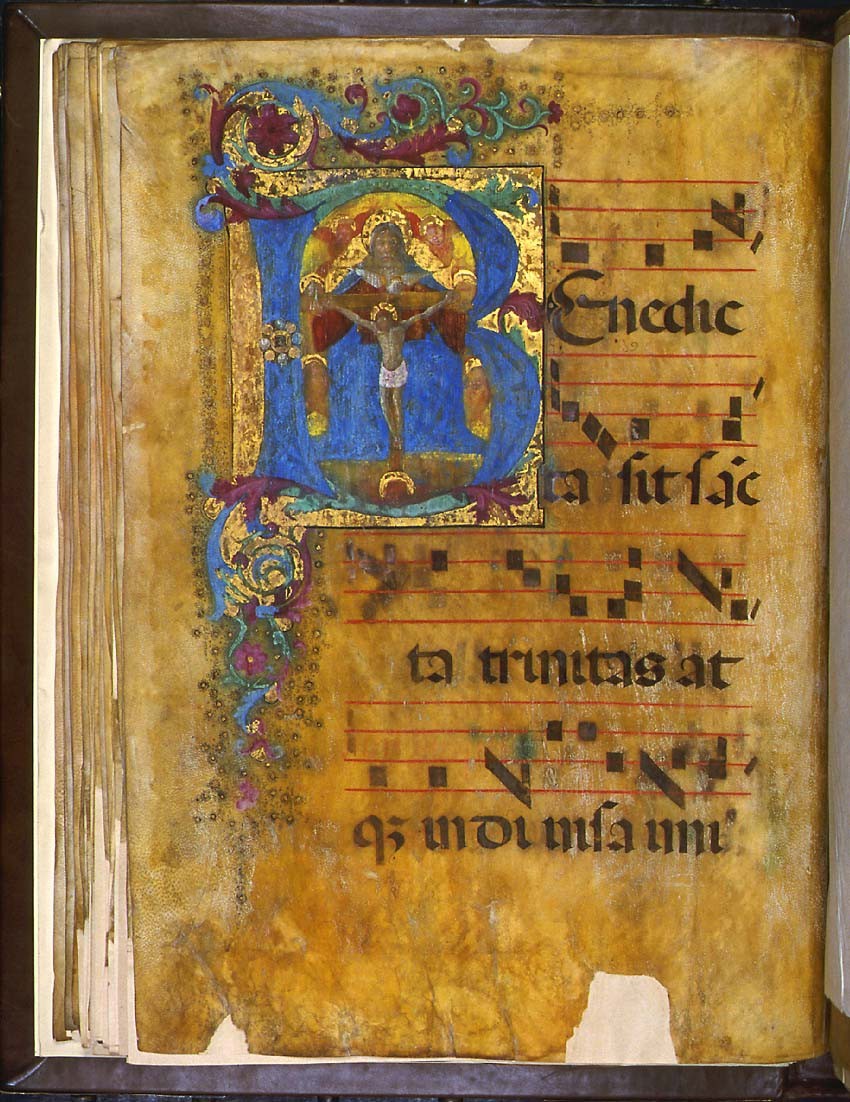 Benedic
ta sit sac̄
ta trinitas at
qꝫ indi uisa uni